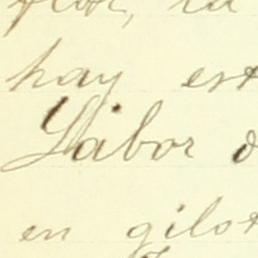 hay est
Labor d
en gilot